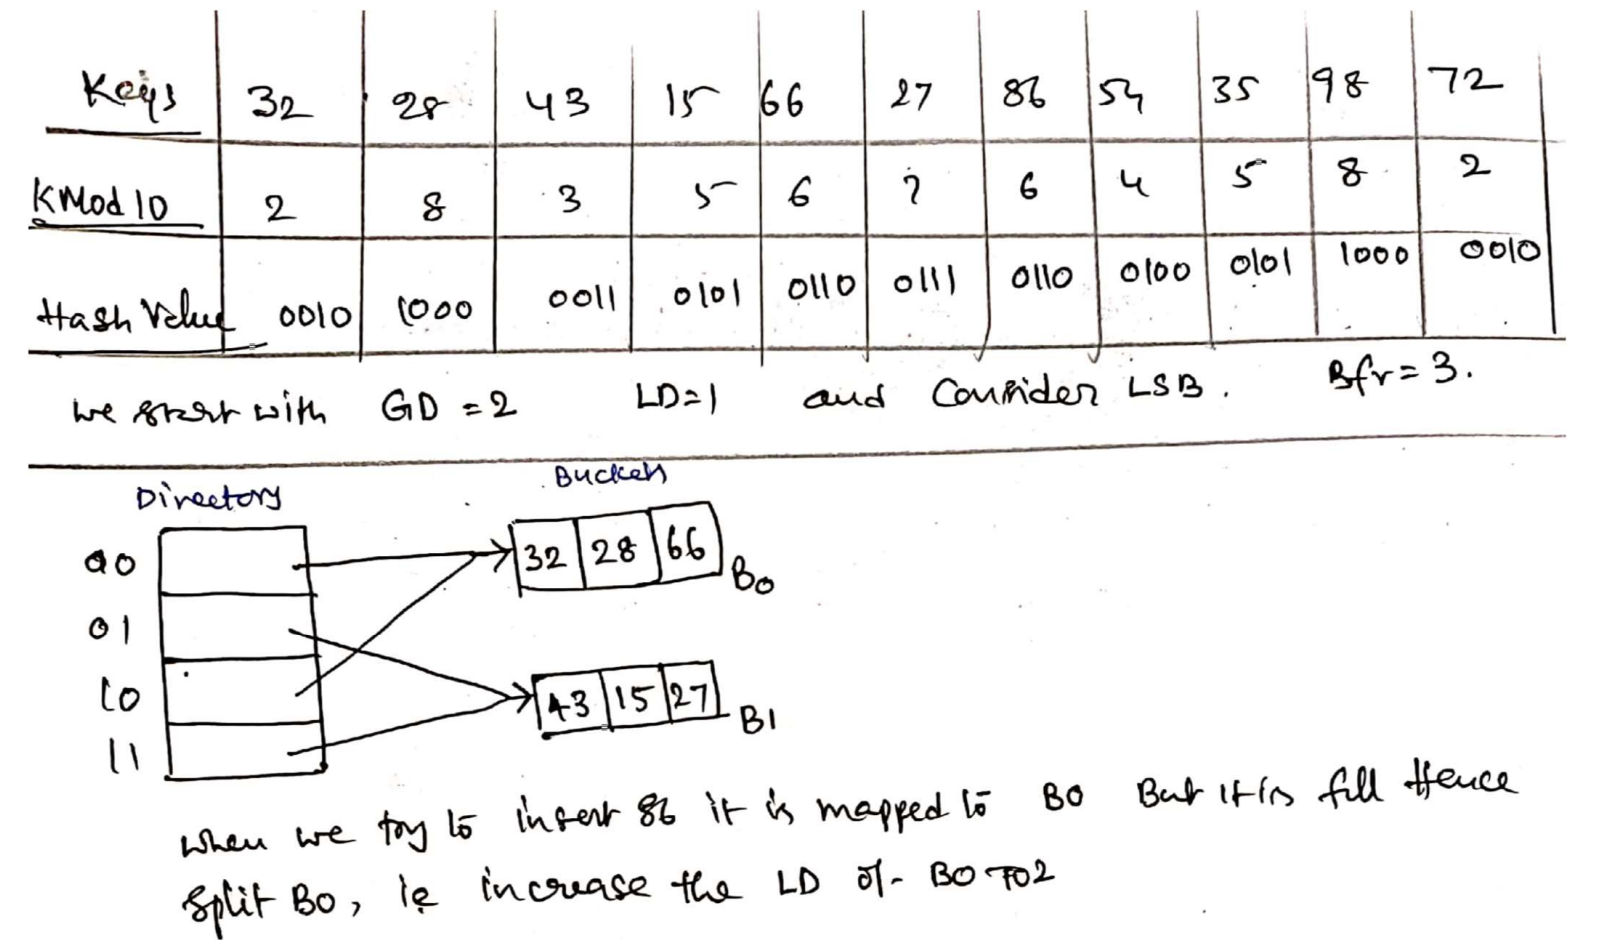 Keys 32 28 43 15 66 27 86 54 35 98 72
KMod 10 2 8 3 5 6 7 6 4 5 8 2
Hash Value 0010 1000 0011 0101 0110 0111 0110 0100 0101 1000 0010
we start with GD = 2 LD=1 and Consider LSB. Bfr = 3.
Directory Buckets
00 32 28 66 B0
01
10 43 15 27 B1
11
when we try to insert 86 it is mapped to B0 But it is full Hence
Split B0, ie increase the LD of B0 TO 2